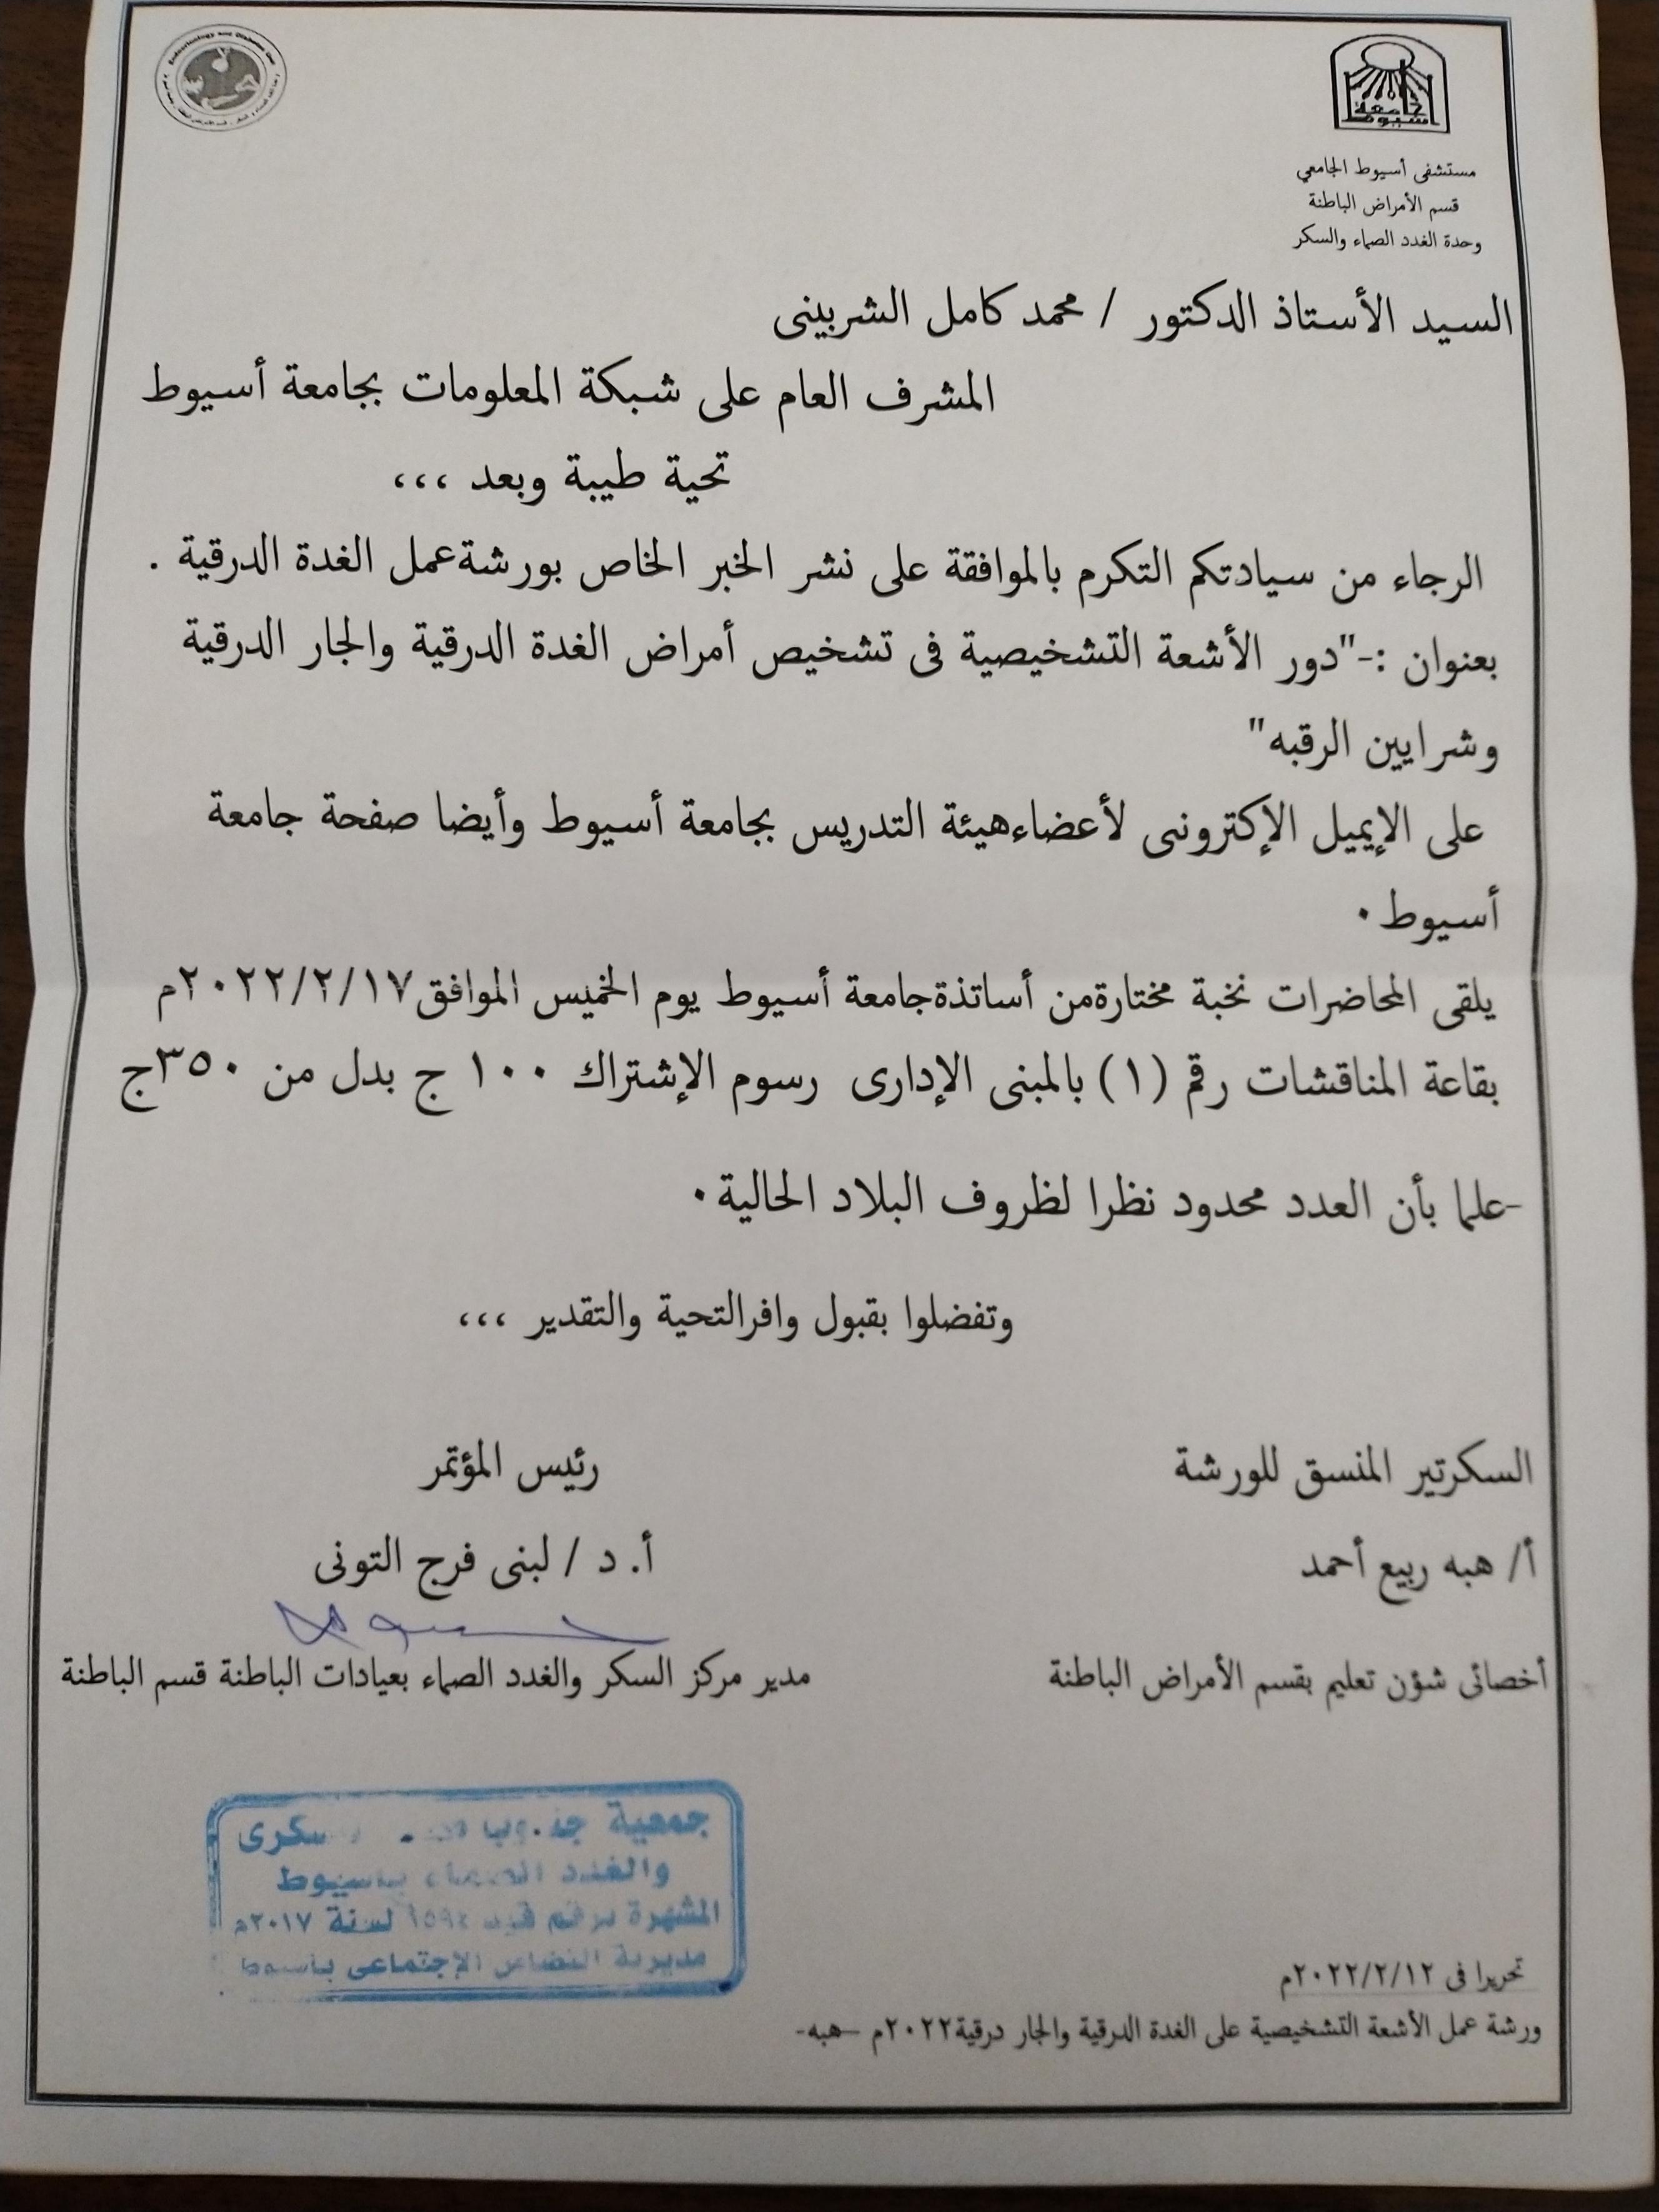 Endocrinology and Diabetes
جامعة أسيوط
مستشفى أسيوط الجامعي
قسم الأمراض الباطنة
وحدة الغدد الصماء والسكر
السيد الأستاذ الدكتور / محمد كامل الشربينى
المشرف العام على شبكة المعلومات بجامعة أسيوط
تحية طيبة وبعد ،،،
الرجاء من سيادتكم التكرم بالموافقة على نشر الخبر الخاص بورشةعمل الغدة الدرقية .
بعنوان :-"دور الأشعة التشخيصية فى تشخيص أمراض الغدة الدرقية والجار الدرقية
وشرايين الرقبه"
على الإيميل الإكترونى لأعضاءهيئة التدريس بجامعة أسيوط وأيضا صفحة جامعة
أسيوط ٠
يلقى المحاضرات نخبة مختارةمن أساتذةجامعة أسيوط يوم الخميس الموافق٢٠٢٢/٢/١٧م
بقاعة المناقشات رقم (١) بالمبنى الإدارى رسوم الإشتراك ١٠٠ ج بدل من ٣٥٠ج
-علما بأن العدد محدود نظرا لظروف البلاد الحالية ٠
وتفضلوا بقبول وافرالتحية والتقدير ،،،
السكرتير المنسق للورشة
رئيس المؤتمر
أ/ هبه ربيع أحمد
أ. د / لبنى فرج التونى
أخصائى شؤن تعليم بقسم الأمراض الباطنة
مدير مركز السكر والغدد الصماء بعيادات الباطنة قسم الباطنة
جمعية جنوب
والغدد الصماء بأسيوط
المشهرة برقم قيد لسنة ٢٠١٧م
مديرية التضامن الإجتماعى بأسيوط
تحريرا فى ٢٠٢٢/٢/١٢م
ورشة عمل الأشعة التشخيصية على الغدة الدرقية والجار درقية٢٠٢٢م –هبه-